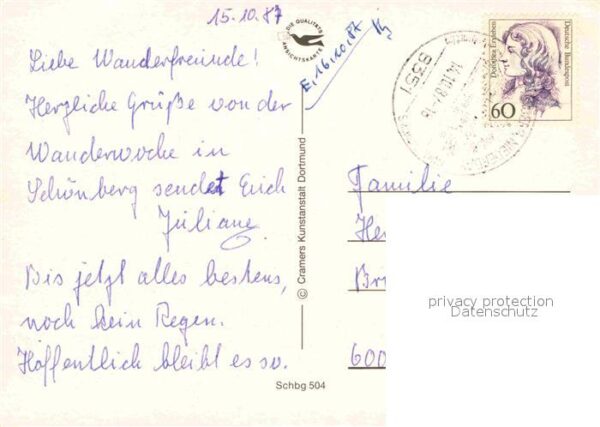 15.10.87
Liebe Wanderfreunde!
Herzliche Grüße von der
Wanderwoche in
Schönberg sendet Euch
Juliane
Bis jetzt alles bestens,
noch kein Regen.
Hoffentlich bleibt es so.
DIE QUALITÄTS
ANSICHTSKARTE
E. 16.10.87
© Cramers Kunstanstalt Dortmund
Schbg 504
Deutsche Bundespost
Dorothea Erxleben
60
Familie
He
Br
600
privacy protection
Datenschutz